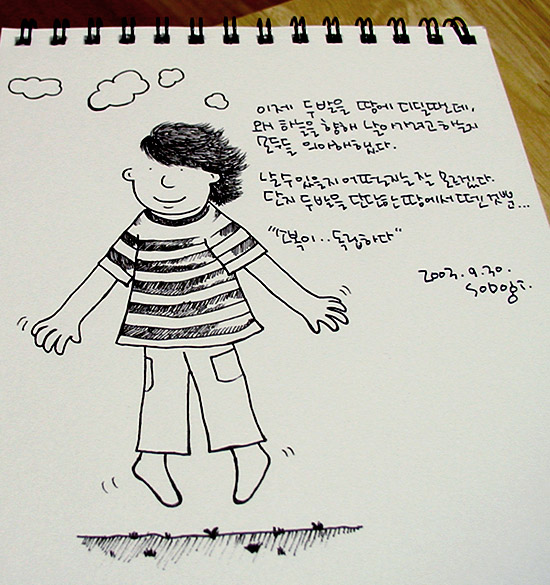 이제 두발을 땅에 디딜때인데,
왜 하늘을 향해 날아가려고 하는지
모두들 의아해했다.
날수 있을지 어떨런지는 잘 모르겠다.
단지 두발을 단단한 땅에서 떼긴 것뿐...
"소복이.. 독립하다"
2003. 9. 30.
Sobogi.